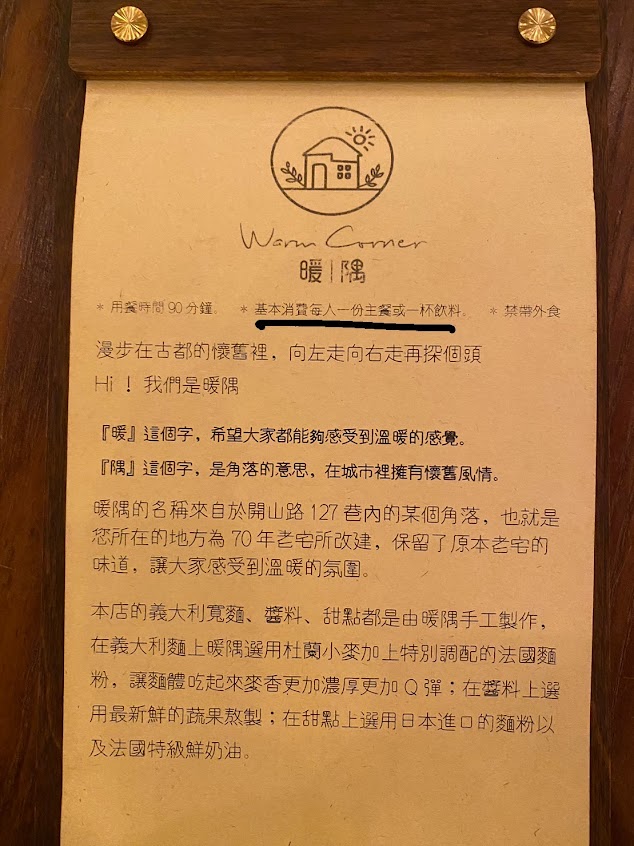 Warm Corner
暖|隅
＊用餐時間90分鐘。 ＊基本消費每人一份主餐或一杯飲料。 ＊禁帶外食
漫步在古都的懷舊裡，向左走向右走再探個頭
Hi！我們是暖隅
『暖』這個字，希望大家都能夠感受到溫暖的感覺。
『隅』這個字，是角落的意思，在城市裡擁有懷舊風情。
暖隅的名稱來自於開山路127巷內的某個角落，也就是
您所在的地方為70年老宅所改建，保留了原本老宅的
味道，讓大家感受到溫暖的氛圍。
本店的義大利寬麵、醬料、甜點都是由暖隅手工製作，
在義大利麵上暖隅選用杜蘭小麥加上特別調配的法國麵
粉，讓麵體吃起來麥香更加濃厚更加Q彈；在醬料上選
用最新鮮的蔬果熬製；在甜點上選用日本進口的麵粉以
及法國特級鮮奶油。